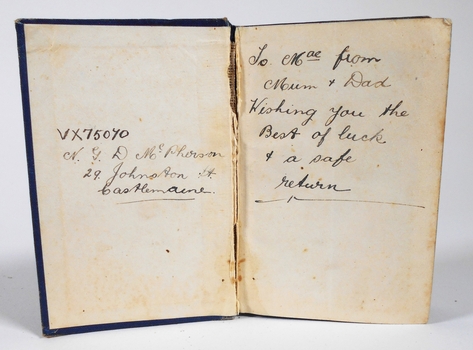 VX75070
N. G. D McPherson
29. Johnston St
Castlemaine.
To Mae from
Mum & Dad
Wishing you the
Best of luck
& a safe
return